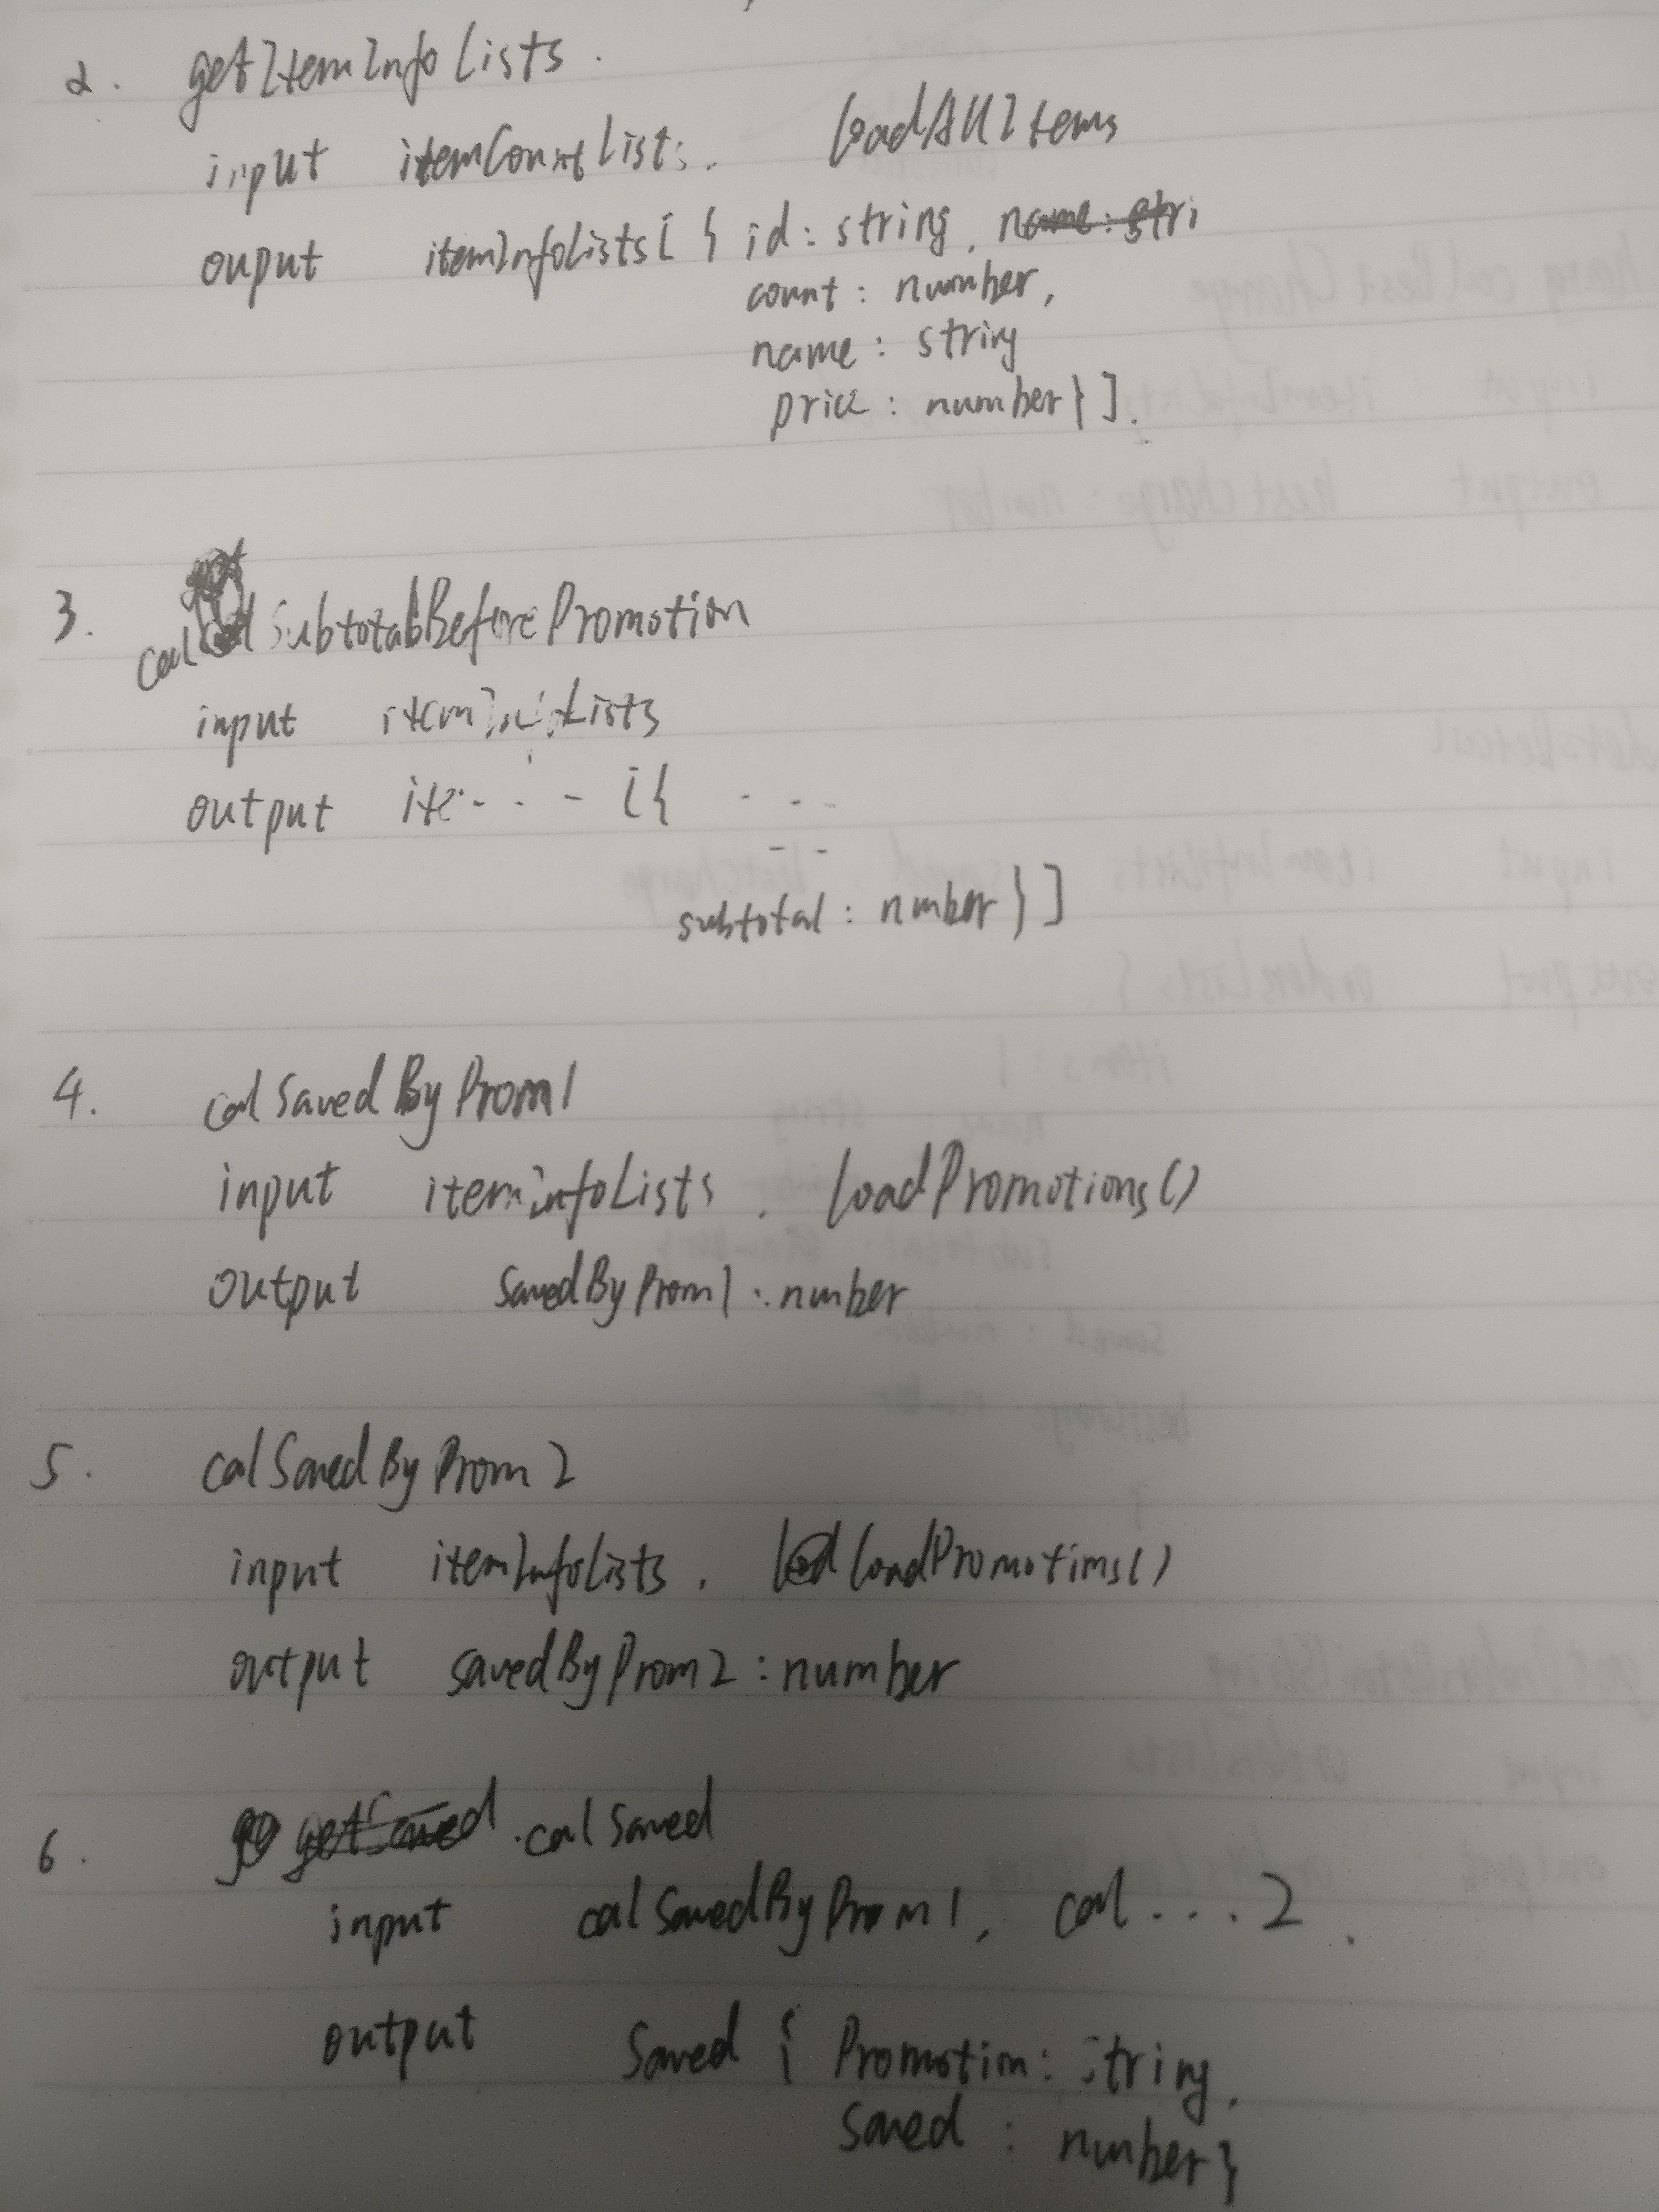 2. getItemInfoLists.
input itemCountLists, loadAllItems
ouput itemInfoLists[ { id: string, name: stri
count: number,
name: string
price: number } ].
3. cal SubtotalBeforePromotion
input itemInfoLists
output ite- - - - [{ - - - -
- -
subtotal: number } ]
4. calSavedByProm1
input itemInfoLists, loadPromotions()
output savedByProm1: number
5. calSavedByProm2
input itemInfoLists, loadPromotions()
output savedByProm2: number
6. getSaved calSaved
input calSavedByProm1, cal...2,
output Saved { Promotion: string,
saved: number}